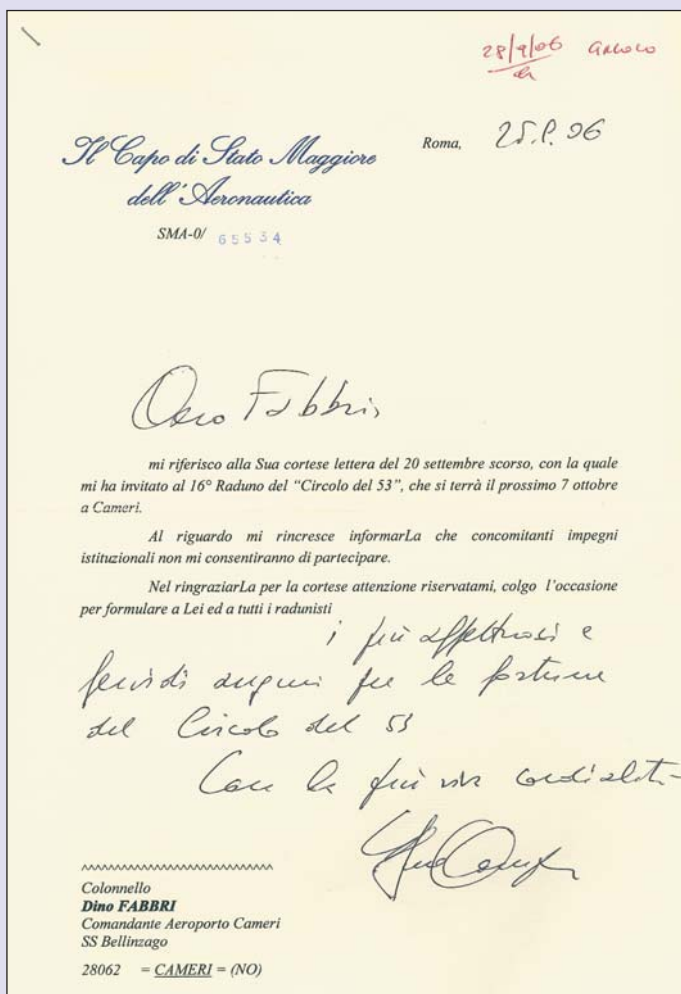 28/9/06 CIRCOLO
Il Capo di Stato Maggiore
dell'Aeronautica
Roma, 25.9.06
SMA-0/ 65534
Caro Fabbri,
mi riferisco alla Sua cortese lettera del 20 settembre scorso, con la quale
mi ha invitato al 16° Raduno del “Circolo del 53”, che si terrà il prossimo 7 ottobre
a Cameri.
Al riguardo mi rincresce informarLa che concomitanti impegni
istituzionali non mi consentiranno di partecipare.
Nel ringraziarLa per la cortese attenzione riservatami, colgo l'occasione
per formulare a Lei ed a tutti i radunisti
i più affettuosi e
fervidi auguri per le fortune
del Circolo del 53
Con la più viva cordialità
Colonnello
Dino FABBRI
Comandante Aeroporto Cameri
SS Bellinzago
28062 = CAMERI = (NO)